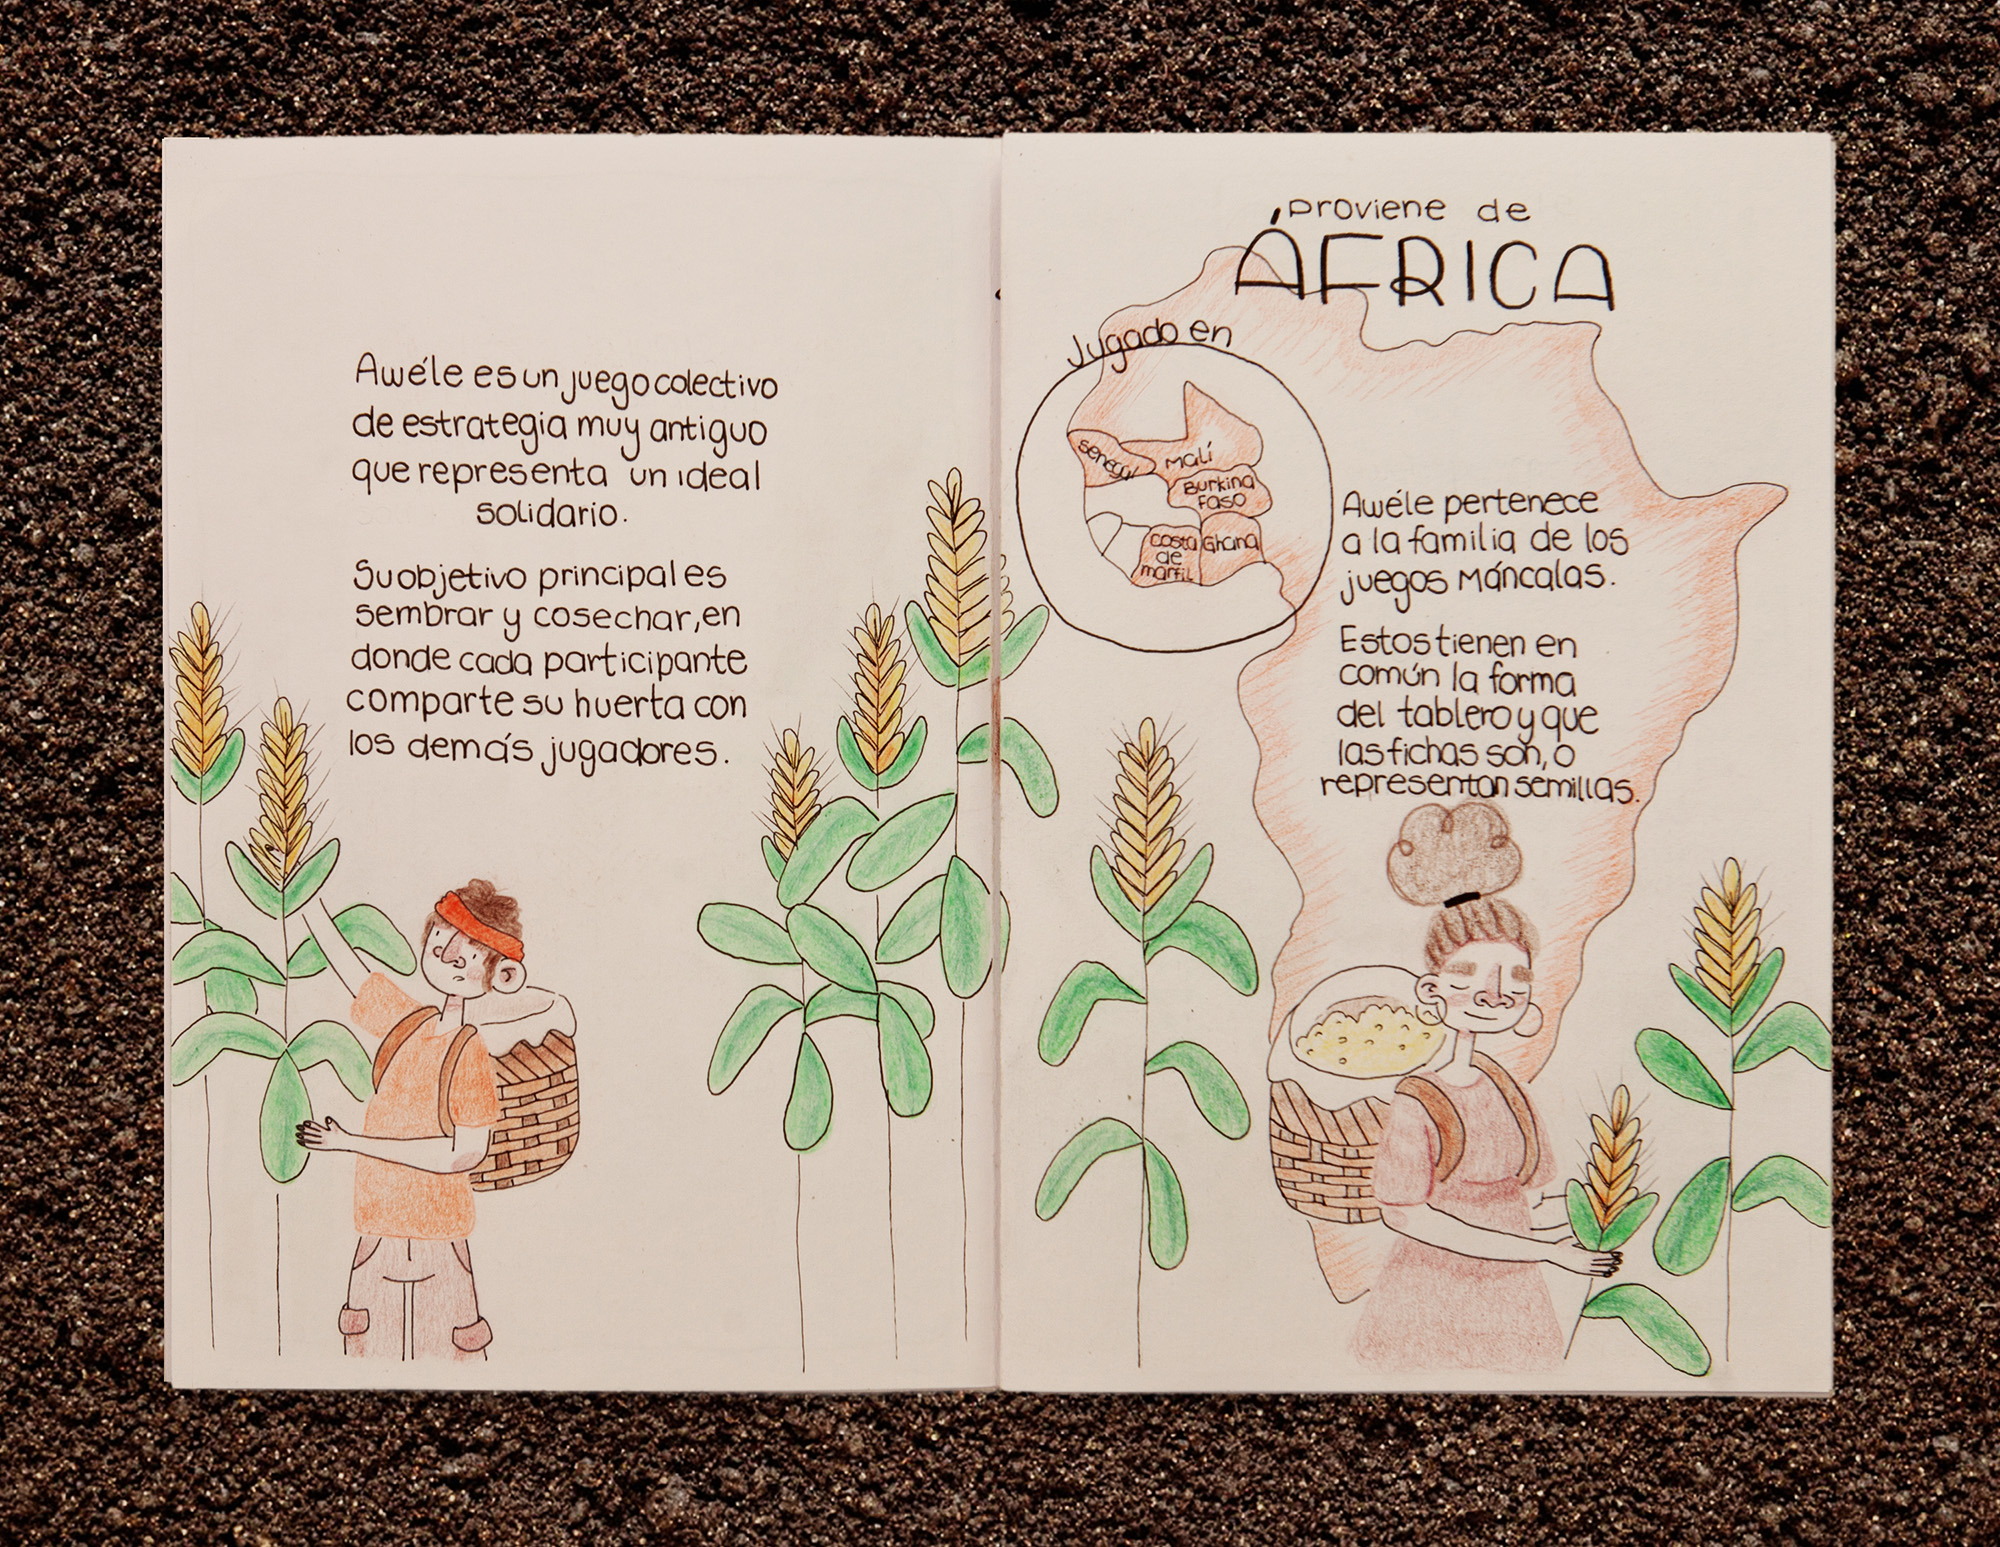 Awéle es un juego colectivo
de estrategia muy antiguo
que representa un ideal
solidario.
Su objetivo principal es
sembrar y cosechar, en
donde cada participante
comparte su huerta con
los demás jugadores.
proviene de
ÁFRICA
Jugado en
Senegal
Malí
Burkina
Faso
Costa
de
marfil
Ghana
Awéle pertenece
a la familia de los
juegos Máncalas.
Estos tienen en
común la forma
del tablero y que
las fichas son, o
representan semillas.